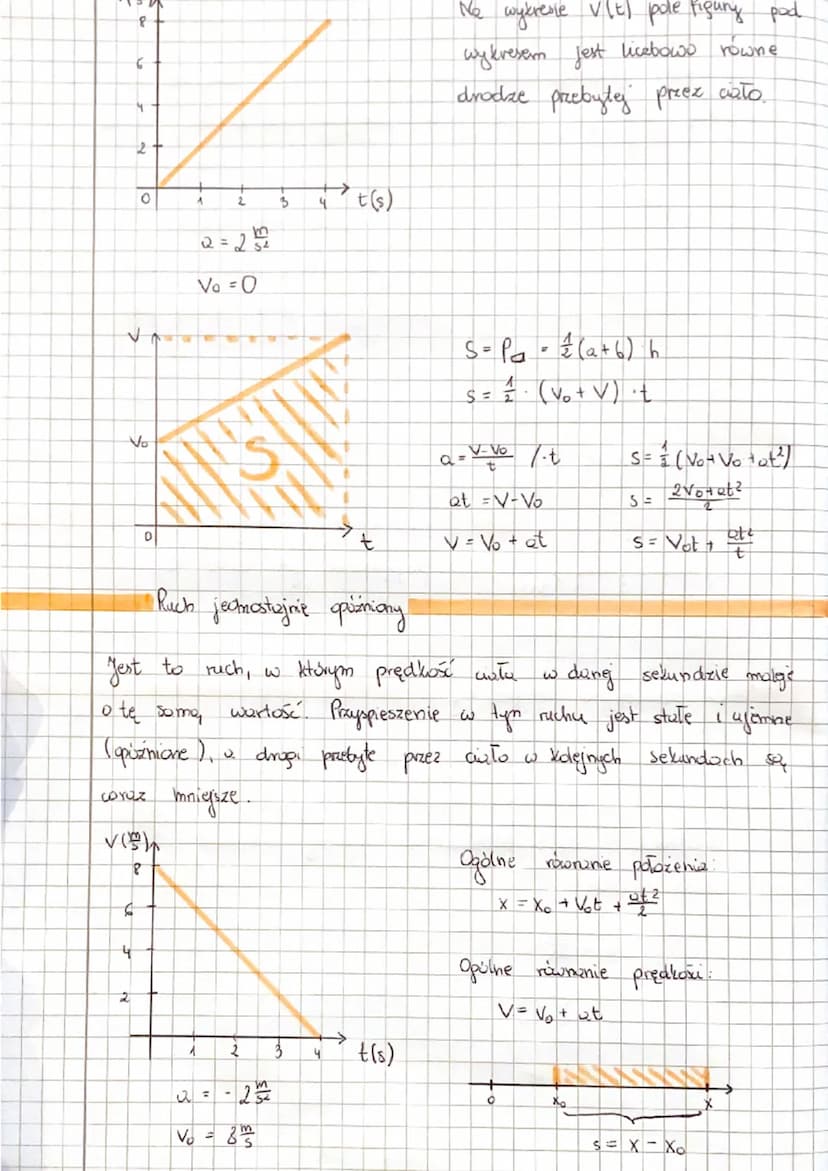 Na wykresie V(t) pole figury pod
wykresem jest liczbowo równe
drodze przebytej przez ciało.
8
6
4
2
0 1 2 3 4 t(s)
a = 2 m/s²
V₀ = 0
V
V₀
S
0
t
S = P▱ = 1/2 (a+b) h
s = 1/2 · (V₀ + V) · t
a = (V-V₀)/t /·t
at = V-V₀
V = V₀ + at
s = 1/2 (V₀+V₀+at²)
s = (2V₀+at²)/2
s = V₀t + at²/t
Ruch jednostajnie opóźniony
Jest to ruch, w którym prędkość ciała w danej sekundzie maleje
o tę samą wartość. Przyspieszenie w tym ruchu jest stałe i ujemne
(opóźnione), a drogi przebyte przez ciało w kolejnych sekundach są
coraz mniejsze.
V(m/s)
8
6
4
2
1 2 3 4 t(s)
a = -2 m/s²
V₀ = 8 m/s
Ogólne równanie położenia:
x = x₀ + V₀t + at²/2
Ogólne równanie prędkości:
V = V₀ + at
0 x₀ x
s = x - x₀